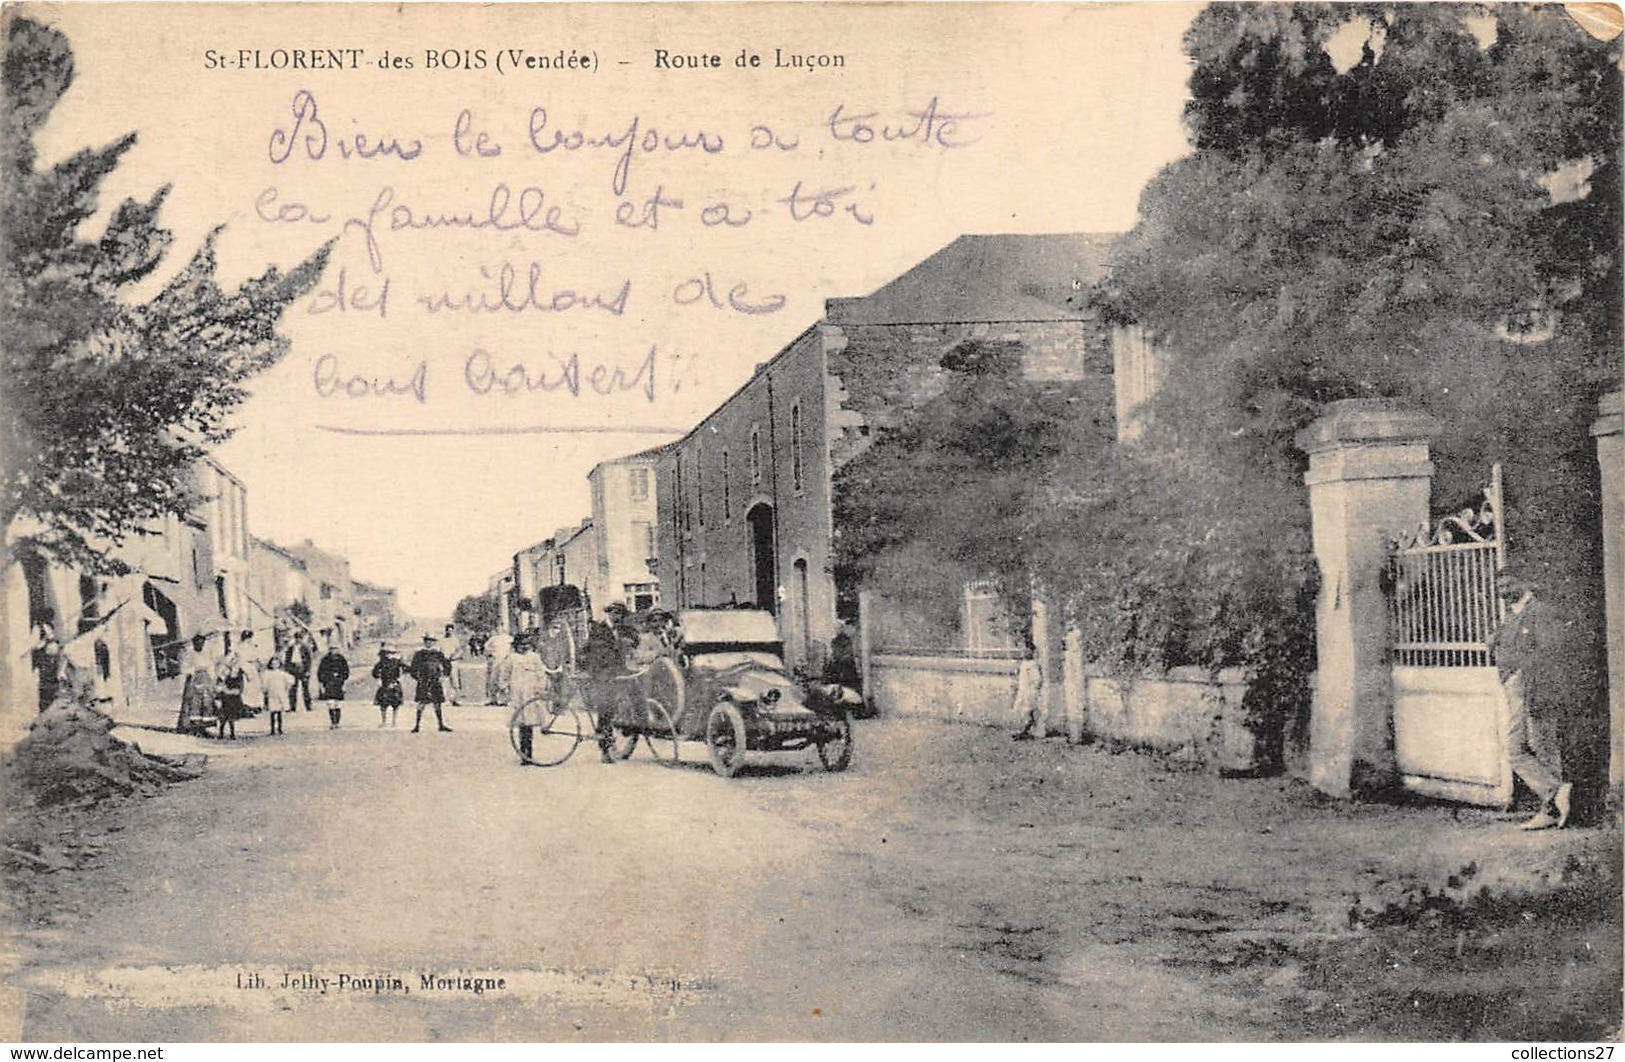 St-FLORENT-des BOIS (Vendée) – Route de Luçon
Bien le bonjour a toute
la famille et a toi
des millons de
bons baisers.
Lib. Jelhy-Poupin, Mortagne
www.delcampe.net
collections27